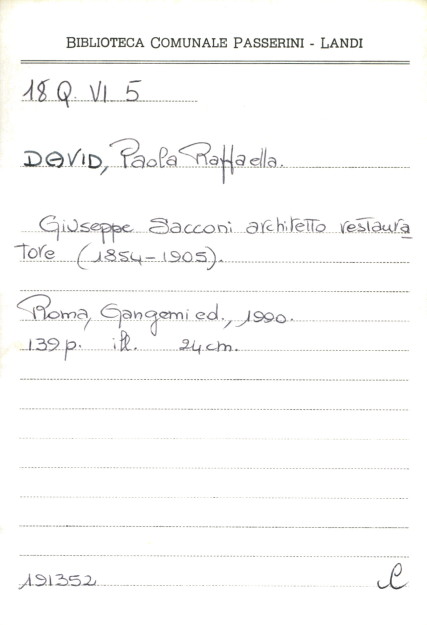 BIBLIOTECA COMUNALE PASSERINI - LANDI
18 Q. VI 5
DAVID, Paola Raffaella.
Giuseppe Sacconi architetto restaura
tore (1854-1905).
Roma, Gangemi ed., 1990.
139 p. ill. 24 cm.
191352